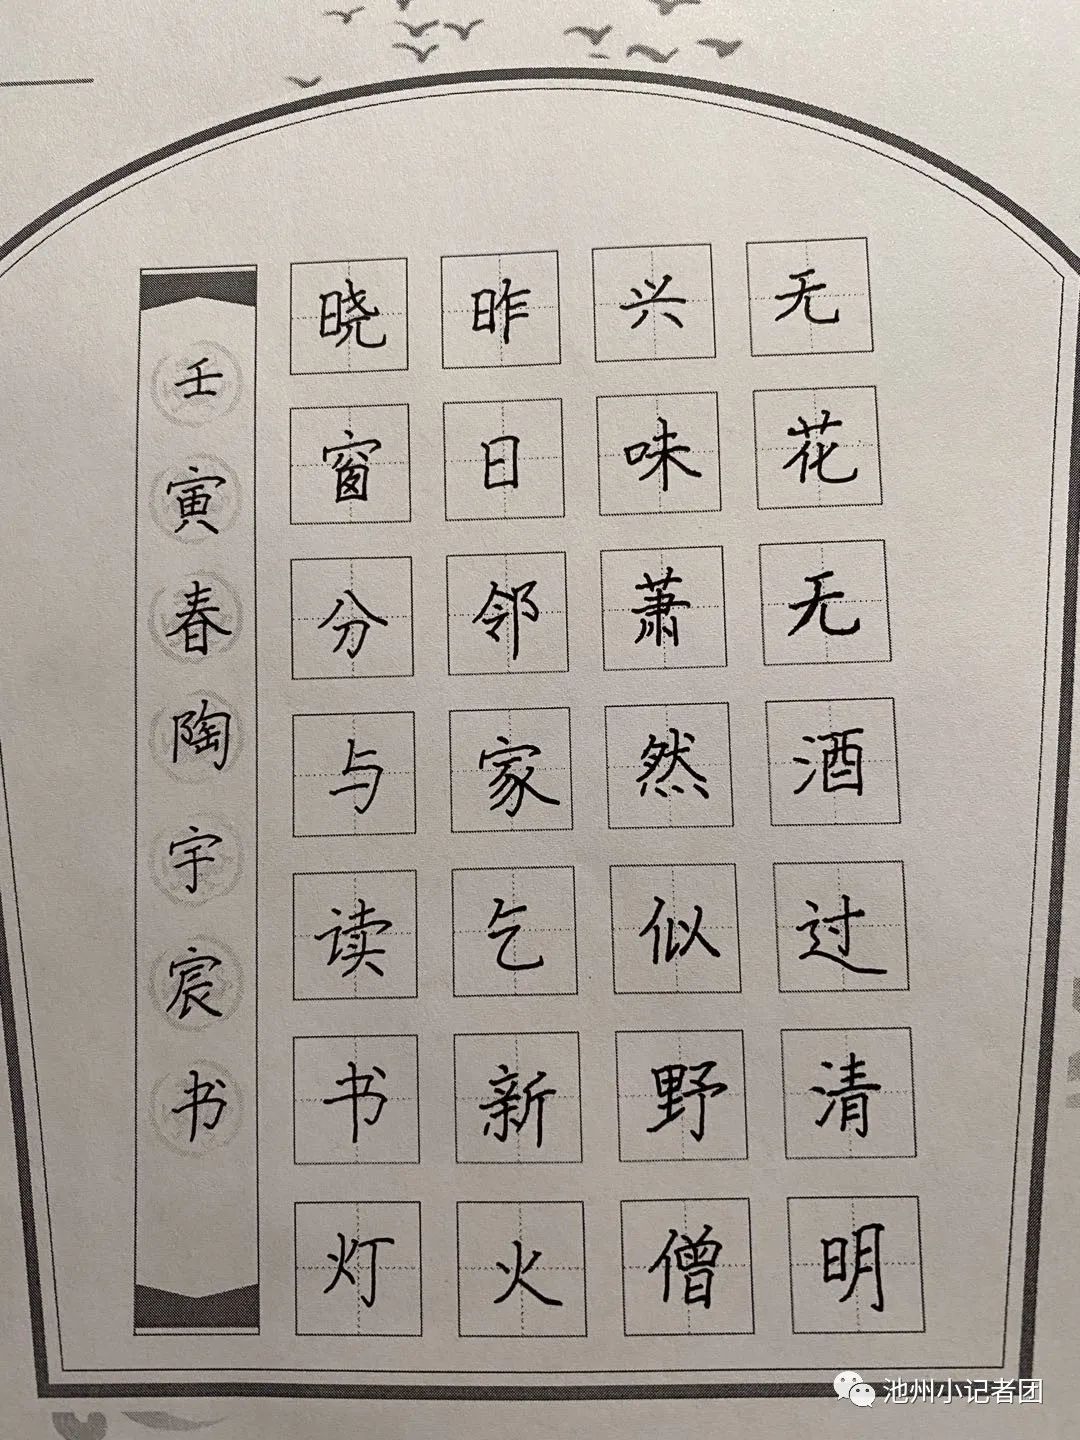 无花无酒过清明
兴味萧然似野僧
昨日邻家乞新火
晓窗分与读书灯
壬寅春陶宇宸书
池州小记者团